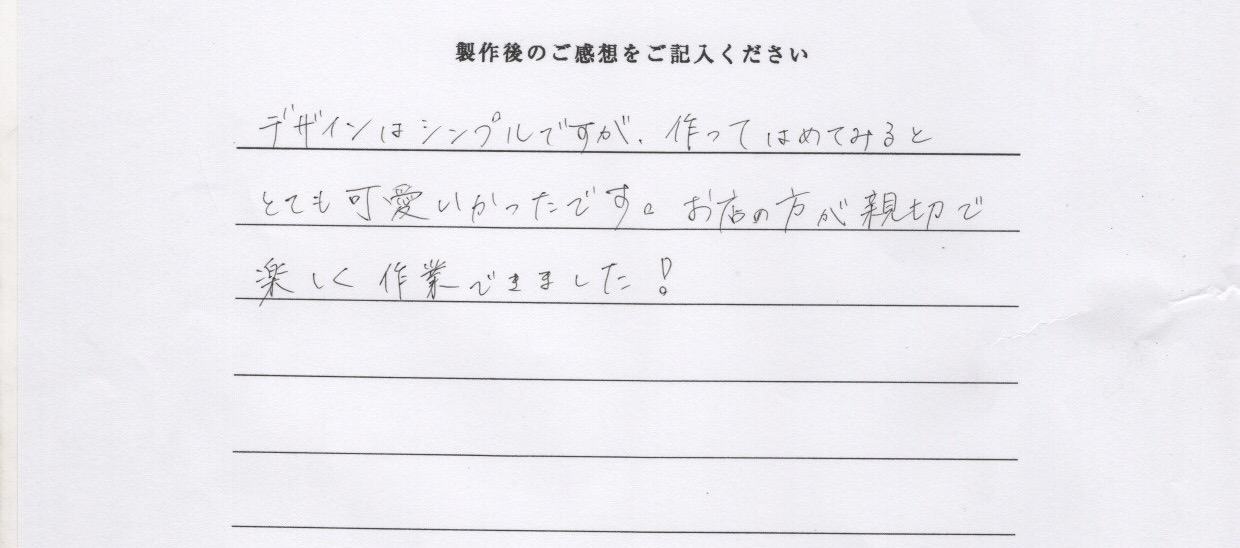 製作後のご感想をご記入ください
デザインはシンプルですが、作ってはめてみると
とても可愛いかったです。お店の方が親切で
楽しく作業できました!